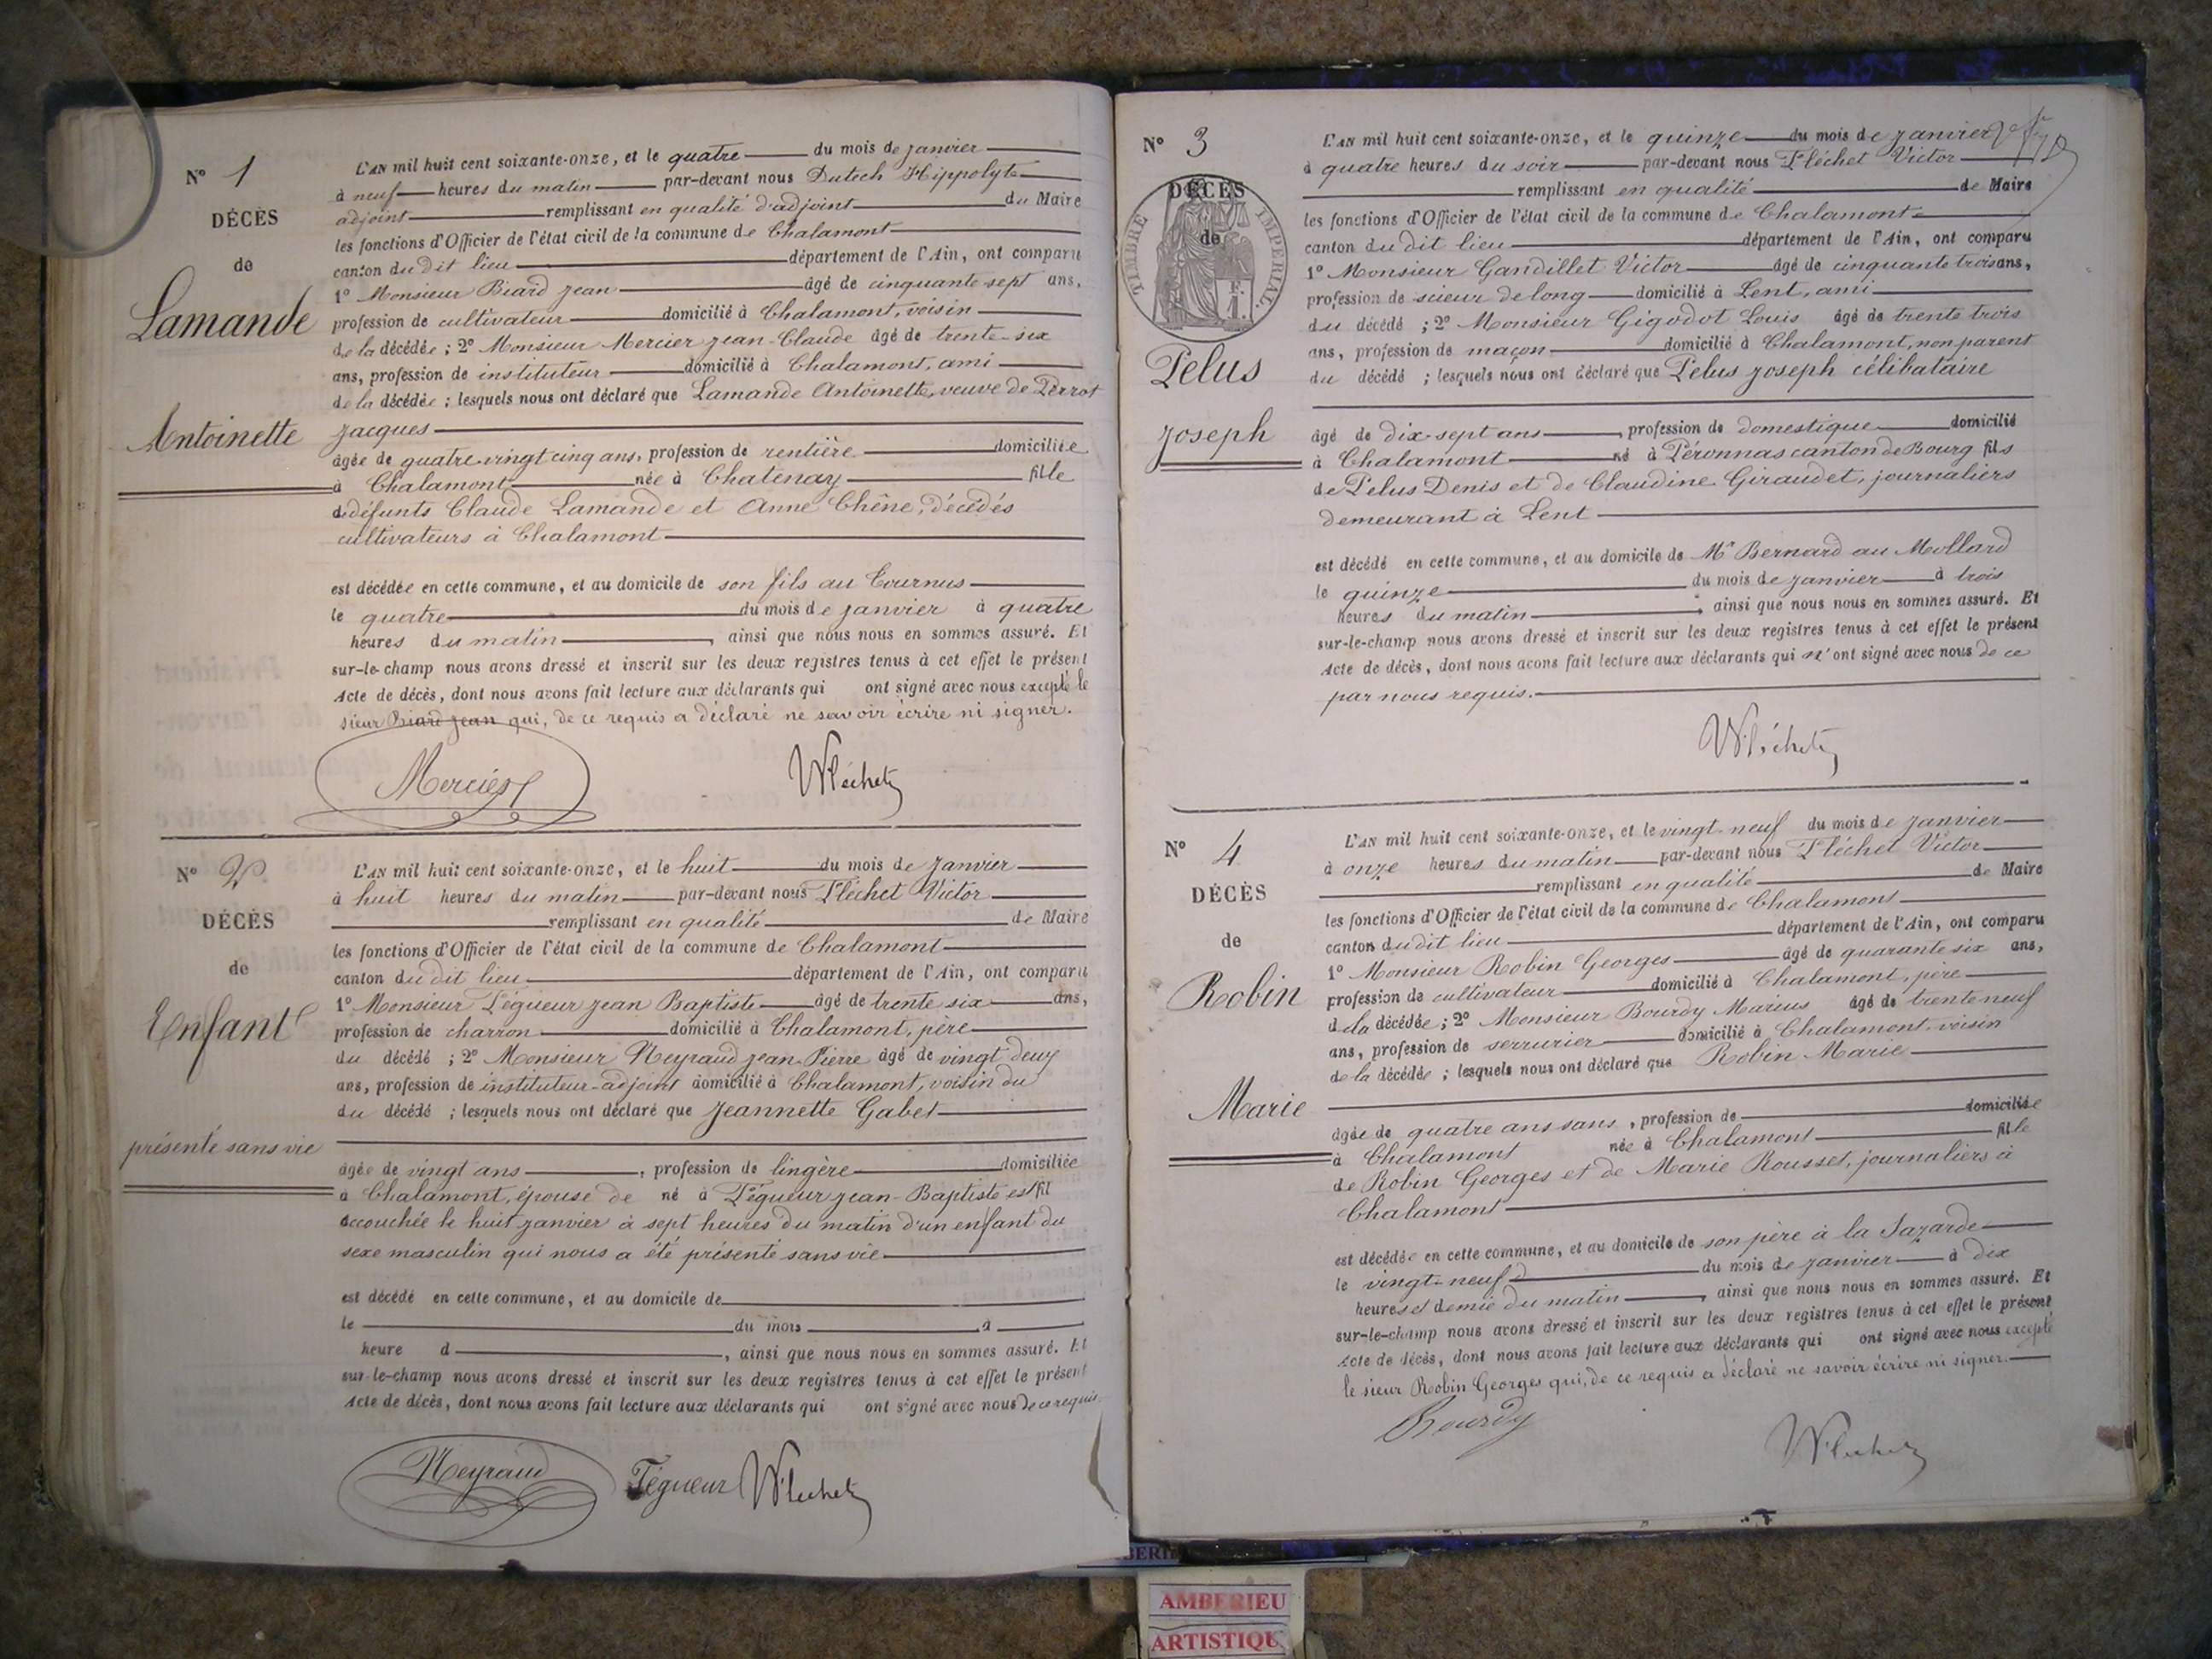 N° 1
DÉCÈS
de
Lamande
Antoinette
L'AN mil huit cent soixante-onze, et le quatre du mois de janvier
à neuf heures du matin par-devant nous Dutech Hippolyte
adjoint remplissant en qualité d'adjoint du Maire
les fonctions d'Officier de l'état civil de la commune de Chalamont
canton du dit lieu département de l'Ain, ont comparu
1° Monsieur Biard Jean âgé de cinquante sept ans,
profession de cultivateur domicilié à Chalamont, voisin
de la décédée ; 2° Monsieur Mercier Jean-Claude âgé de trente-six
ans, profession de instituteur domicilié à Chalamont, ami
de la décédée ; lesquels nous ont déclaré que Lamande Antoinette, veuve de Perrot
Jacques
âgée de quatre-vingt cinq ans, profession de rentière domiciliée
à Chalamont née à Chatenay fille
de défunts Claude Lamande et Anne Chêne, décédés
cultivateurs à Chalamont
est décédée en cette commune, et au domicile de son fils au Tournus
le quatre du mois de janvier à quatre
heures du matin, ainsi que nous nous en sommes assuré. Et
sur-le-champ nous avons dressé et inscrit sur les deux registres tenus à cet effet le présent
Acte de décès, dont nous avons fait lecture aux déclarants qui ont signé avec nous excepté le
sieur Biard Jean qui, de ce requis a déclaré ne savoir écrire ni signer.
Mercier VFléchet
N° 2
DÉCÈS
de
Enfant
présenté sans vie
L'AN mil huit cent soixante-onze, et le huit du mois de janvier
à huit heures du matin par-devant nous Fléchet Victor
remplissant en qualité de Maire
les fonctions d'Officier de l'état civil de la commune de Chalamont
canton du dit lieu département de l'Ain, ont comparu
1° Monsieur Tégueur Jean Baptiste âgé de trente six ans,
profession de charron domicilié à Chalamont, père
du décédé ; 2° Monsieur Neyraud Jean-Pierre âgé de vingt deux
ans, profession de instituteur-adjoint domicilié à Chalamont, voisin du
du décédé ; lesquels nous ont déclaré que Jeannette Gabet
âgée de vingt ans, profession de lingère domiciliée
à Chalamont, épouse de né à Tégueur Jean-Baptiste est fil
accouchée le huit janvier à sept heures du matin d'un enfant du
sexe masculin qui nous a été présenté sans vie
est décédé en cette commune, et au domicile de
le du mois à
heure d, ainsi que nous nous en sommes assuré. Et
sur-le-champ nous avons dressé et inscrit sur les deux registres tenus à cet effet le présent
Acte de décès, dont nous avons fait lecture aux déclarants qui ont signé avec nous de ce requis
Neyraud Tégueur VFléchet
N° 3
DÉCÈS
de
TIMBRE IMPERIAL
Pelus
Joseph
L'AN mil huit cent soixante-onze, et le quinze du mois de janvier
à quatre heures du soir par-devant nous Fléchet Victor
remplissant en qualité de Maire
les fonctions d'Officier de l'état civil de la commune de Chalamont
canton du dit lieu département de l'Ain, ont comparu
1° Monsieur Gandillet Victor âgé de cinquante trois ans,
profession de scieur de long domicilié à Lent, ami
du décédé ; 2° Monsieur Gigodot Louis âgé de trente trois
ans, profession de maçon domicilié à Chalamont, non parent
du décédé ; lesquels nous ont déclaré que Pelus Joseph célibataire
âgé de dix-sept ans, profession de domestique domicilié
à Chalamont né à Péronnas canton de Bourg fils
de Pelus Denis et de Claudine Giraudet, journaliers
demeurant à Lent
est décédé en cette commune, et au domicile de Mr Bernard au Mollard
le quinze du mois de janvier à trois
heures du matin, ainsi que nous nous en sommes assuré. Et
sur-le-champ nous avons dressé et inscrit sur les deux registres tenus à cet effet le présent
Acte de décès, dont nous avons fait lecture aux déclarants qui n'ont signé avec nous de ce
par nous requis.
VFléchet
N° 4
DÉCÈS
de
Robin
Marie
L'AN mil huit cent soixante-onze, et le vingt-neuf du mois de janvier
à onze heures du matin par-devant nous Fléchet Victor
remplissant en qualité de Maire
les fonctions d'Officier de l'état civil de la commune de Chalamont
canton du dit lieu département de l'Ain, ont comparu
1° Monsieur Robin Georges âgé de quarante six ans,
profession de cultivateur domicilié à Chalamont, père
de la décédée ; 2° Monsieur Bourdy Marius âgé de trente neuf
ans, profession de serrurier domicilié à Chalamont voisin
de la décédée ; lesquels nous ont déclaré que Robin Marie
âgée de quatre ans sans, profession de domiciliée
à Chalamont née à Chalamont fille
de Robin Georges et de Marie Rousset, journaliers à
Chalamont
est décédée en cette commune, et au domicile de son père à la Sazarde
le vingt-neuf du mois de janvier à dix
heures et demie du matin, ainsi que nous nous en sommes assuré. Et
sur-le-champ nous avons dressé et inscrit sur les deux registres tenus à cet effet le présent
Acte de décès, dont nous avons fait lecture aux déclarants qui ont signé avec nous excepté
le sieur Robin Georges qui, de ce requis a déclaré ne savoir écrire ni signer.
Bourdy VFléchet
AMBERIEU
ARTISTIQU